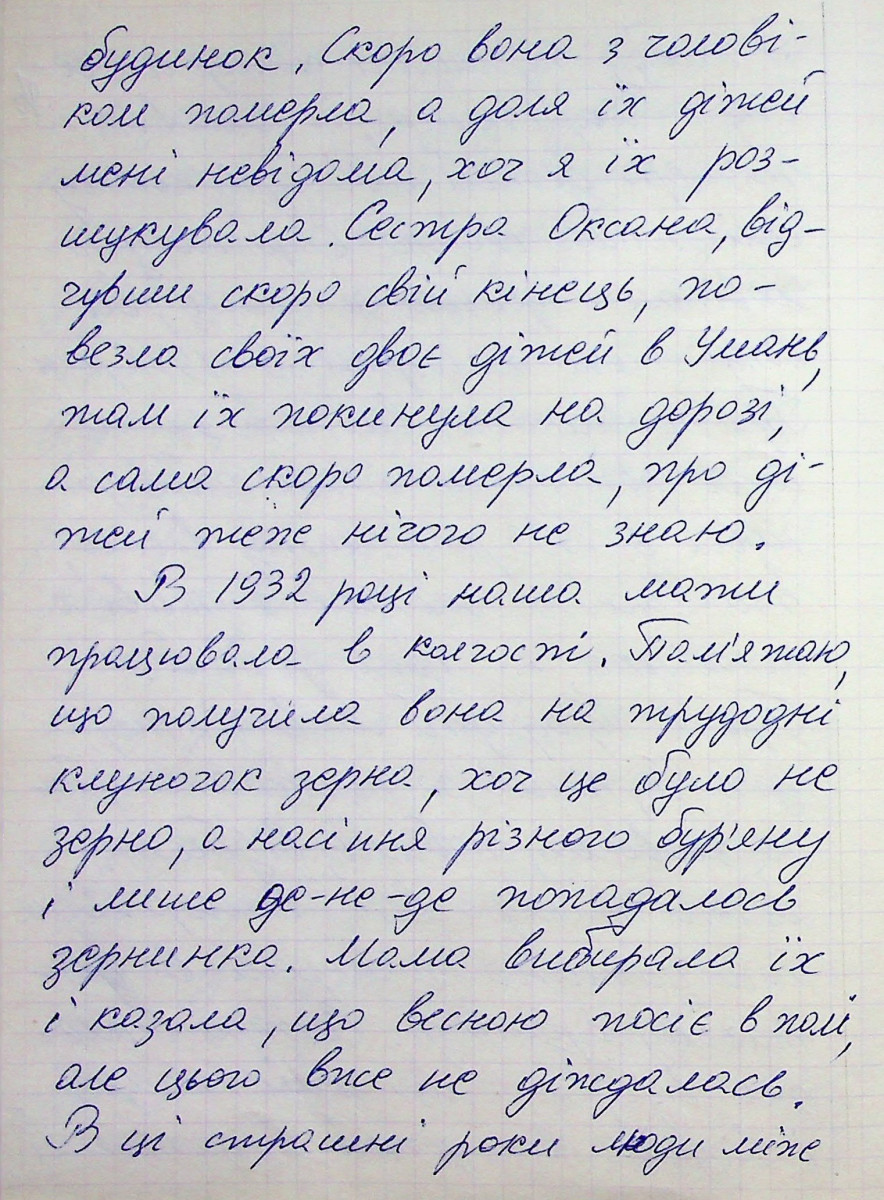 будинок. Скоро вона з чолові-
ком померла, а доля їх дітей
мені невідома, хоч я їх роз-
шукувала. Сестра Оксана, від-
чувши скоро свій кінець, по-
везла своїх двоє дітей в Умань,
там їх покинула на дорозі,
а сама скоро померла, про ді-
тей теж нічого не знаю.
В 1932 році наша мати
працювала в колгоспі. Пам'ятаю,
що получила вона на трудодні
клуночок зерна, хоч це було не
зерно, а насіння різного бур'яну
і лише де-не-де попадалось
зернинка. Мама вибирала їх
і казала, що весною посіє в полі,
але цього вже не діждалась.
В ці страшні роки люди між